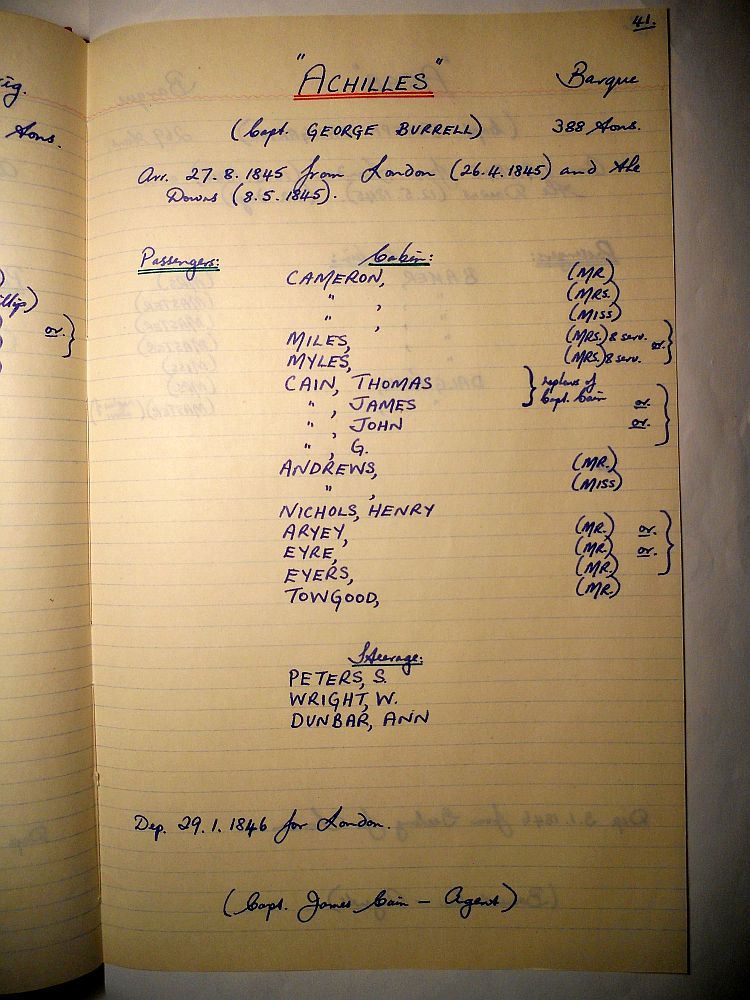 41.
"ACHILLES" Barque
(Capt. GEORGE BURRELL) 388 Tons.
Arr. 27.8.1845 from London (26.4.1845) and the
Downs (8.5.1845).
Passengers: Cabin:
CAMERON, (MR)
" , (MRS.)
" , (MISS)
MILES, (MRS.) & serv. or.
MYLES, (MRS.) & serv.
CAIN, THOMAS } nephews of
" , JAMES Capt. Cain or.
" , JOHN or.
" , G.
ANDREWS, (MR.)
" , (MISS)
NICHOLS, HENRY
ARYEY, (MR.) or.
EYRE, (MR.) or.
EYERS, (MR.)
TOWGOOD, (MR.)
Steerage:
PETERS, S.
WRIGHT, W.
DUNBAR, ANN
Dep. 29.1.1846 for London.
(Capt. James Cain — Agent)
ig.
Tons.
)
llip)
or.